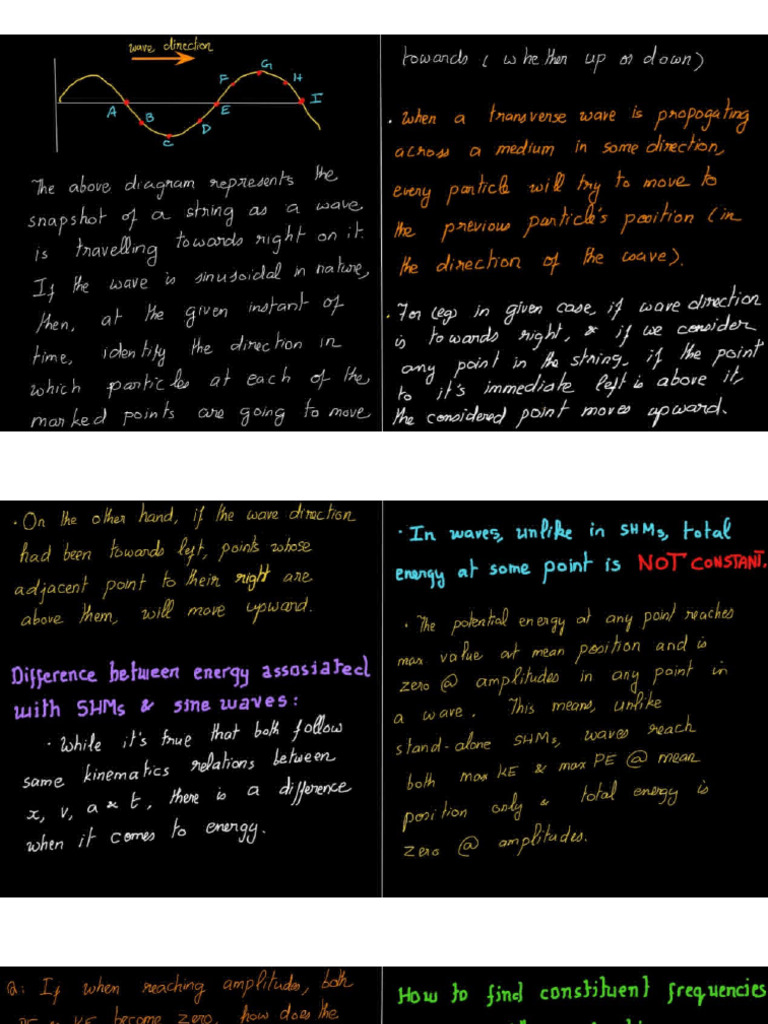 wave direction
A B C D E F G H I
The above diagram represents the
snapshot of a string as a wave
is travelling towards right on it.
If the wave is sinusoidal in nature,
then, at the given instant of
time, identify the direction in
which particles at each of the
marked points are going to move
towards (whether up or down)
. When a transverse wave is propogating
across a medium in some direction,
every particle will try to move to
the previous particle's position (in
the direction of the wave).
. For (eg) in given case, if wave direction
is towards right, & if we consider
any point in the string, if the point
to it's immediate left is above it,
the considered point moves upward.
· On the other hand, if the wave direction
had been towards left, points whose
adjacent point to their right are
above them, will move upward.
Difference between energy assosiated
with SHMs & sine waves:
· While it's true that both follow
same kinematics relations between
x, v, a & t, there is a difference
when it comes to energy.
· In waves, unlike in SHMs, total
energy at some point is NOT CONSTANT.
· The potential energy at any point reaches
max value at mean position and is
zero @ amplitudes in any point in
a wave. This means, unlike
stand-alone SHMs, waves reach
both max KE & max PE @ mean
position only & total energy is
zero @ amplitudes.
Q: If when reaching amplitudes, both
PE & KE become zero, how does the
How to find constituent frequencies